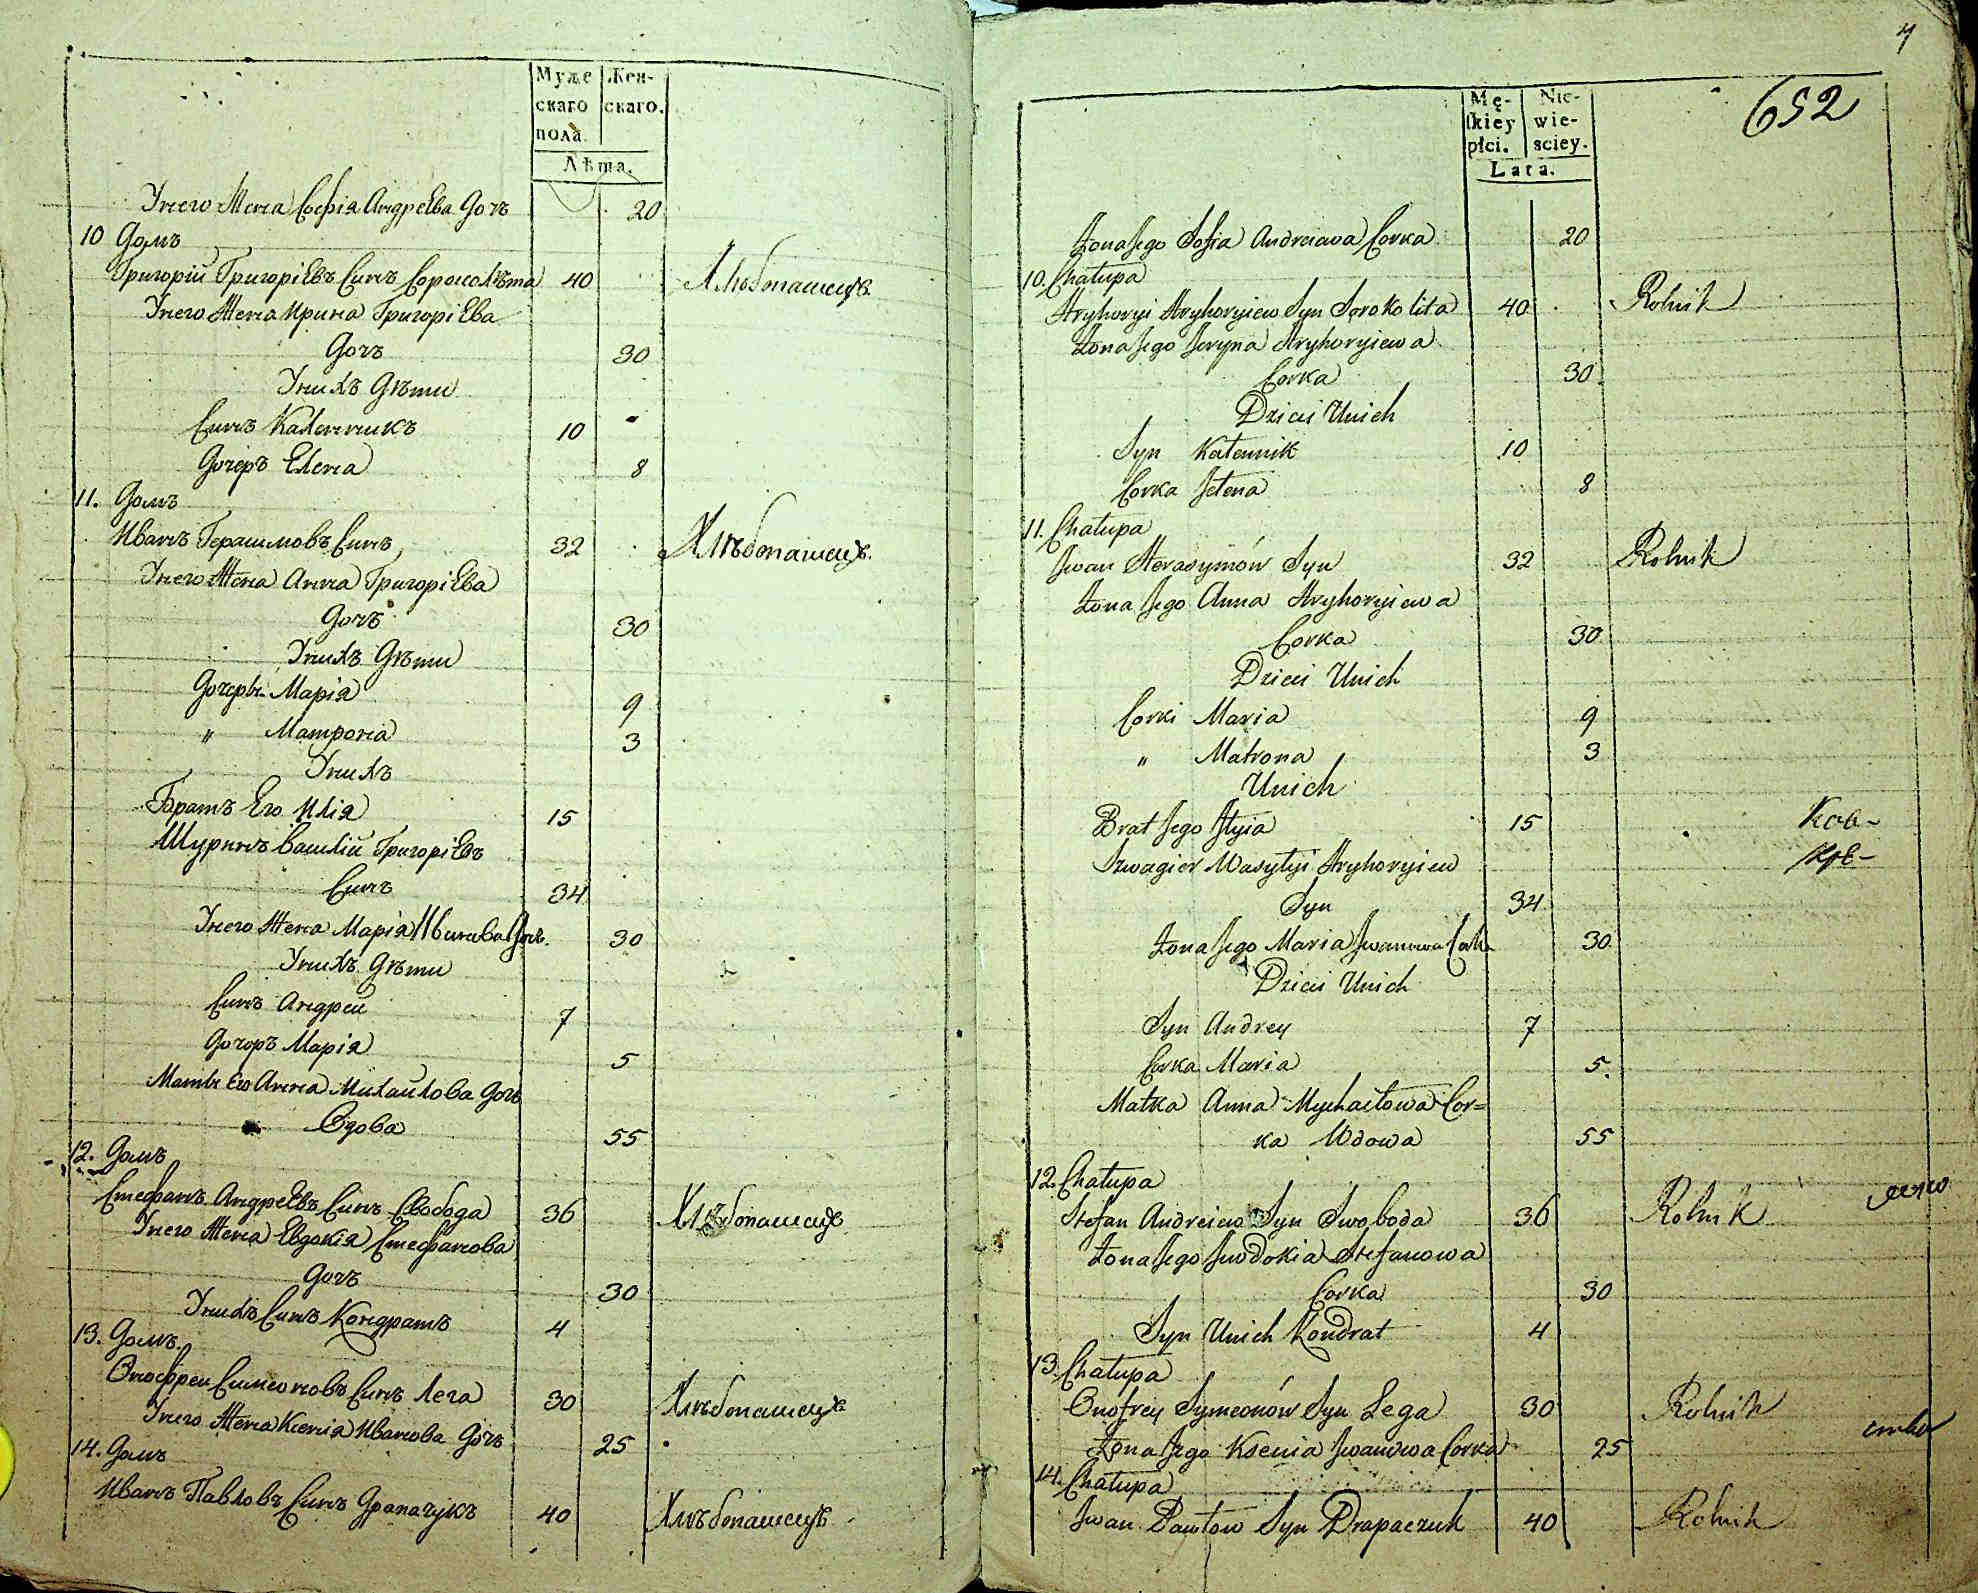 Муже
скаго
пола.
Жен-
скаго.
Лѣта.
Унего Жена Софія Андреева Дочъ 20
10 Домъ
Григорій Григоріевъ Синъ Сороколѣта 40 Хлѣбопашецъ
Унего Жена Ирина Григоріева
Дочъ 30
Унихъ Дѣти
Синъ Каленникъ 10
Дочеръ Елена 8
11. Домъ
Иванъ Герасимовъ Синъ 32 Хлѣбопашецъ.
Унего Жена Анна Григоріева
Дочъ 30
Унихъ Дѣти
Дочеры Марія 9
" Матрона 3
Унихъ
Братъ Его Илія 15
Шуринъ Василій Григоріевъ
Синъ 34
Унего Жена Марія Иванова Дочъ. 30
Унихъ Дѣти
Синъ Андрей 7
Дочеръ Марія 5
Мать Его Анна Михайлова Дочъ
Вдова 55
12. Домъ
Стефанъ Андреевъ Синъ Свобода 36 Хлѣбопашецъ
Унего Жена Евдокія Стефанова
Дочъ 30
Унихъ Синъ Кондратъ 4
13. Домъ.
Онофрей Симеоновъ Синъ Лега 30 Хлѣбопашецъ
Унего Жена Ксенія Иванова Дочъ 25
14. Домъ
Иванъ Павловъ Синъ Драпачукъ 40 Хлѣбопашецъ
7
652
Mę-
skiey
płci.
Nie-
wie-
sciey.
Lata.
Żona Jego Sofia Andreiawa Corka 20
10. Chałupa
Hryhoryi Hryhoryiew Syn Sorokolita 40 Rolnik
Żona Jego Jeryna Hryhoryiewa
Corka 30.
Dzieci Unich
Syn Kałennik 10
Corka Jełena 8
11. Chałupa
Jwan Herasymów Syn 32 Rolnik
Żona Jego Anna Hryhoryiewa
Corka 30
Dzieci Unich
Corki Maria 9
" Matrona 3
Unich
Brat Jego Jłyia 15
Szwagier Wasyłyi Hryhoryiew
Syn 34
Żona Jego Maria Jwanowa Corka 30
Dzieci Unich
Syn Andrey 7
Corka Maria 5.
Matka Anna Mychaiłowa Cor=
ka Wdowa 55
12. Chałupa
Stefan Andreiew Syn Swoboda 36 Rolnik
Żona Jego Jewdokia Stefanowa
Corka 30
Syn Unich Kondrat 4
13. Chałupa
Onofrey Symeonów Syn Lega 30 Rolnik
Żona Jego Ksenia Jwanowa Corka 25
14. Chałupa
Jwan Pawłow Syn Drapaczuk 40 Rolnik